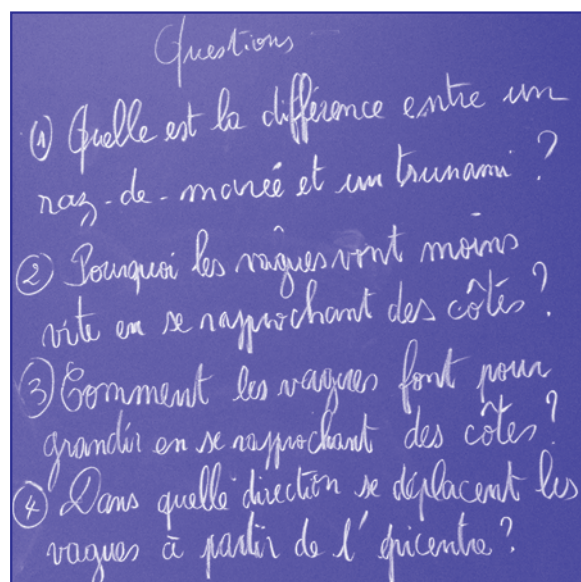 Questions
① Quelle est la différence entre un
raz-de-marée et un tsunami ?
② Pourquoi les vagues vont moins
vite en se rapprochant des côtes ?
③ Comment les vagues font pour
grandir en se rapprochant des côtes ?
④ Dans quelle direction se déplacent les
vagues à partir de l'épicentre ?